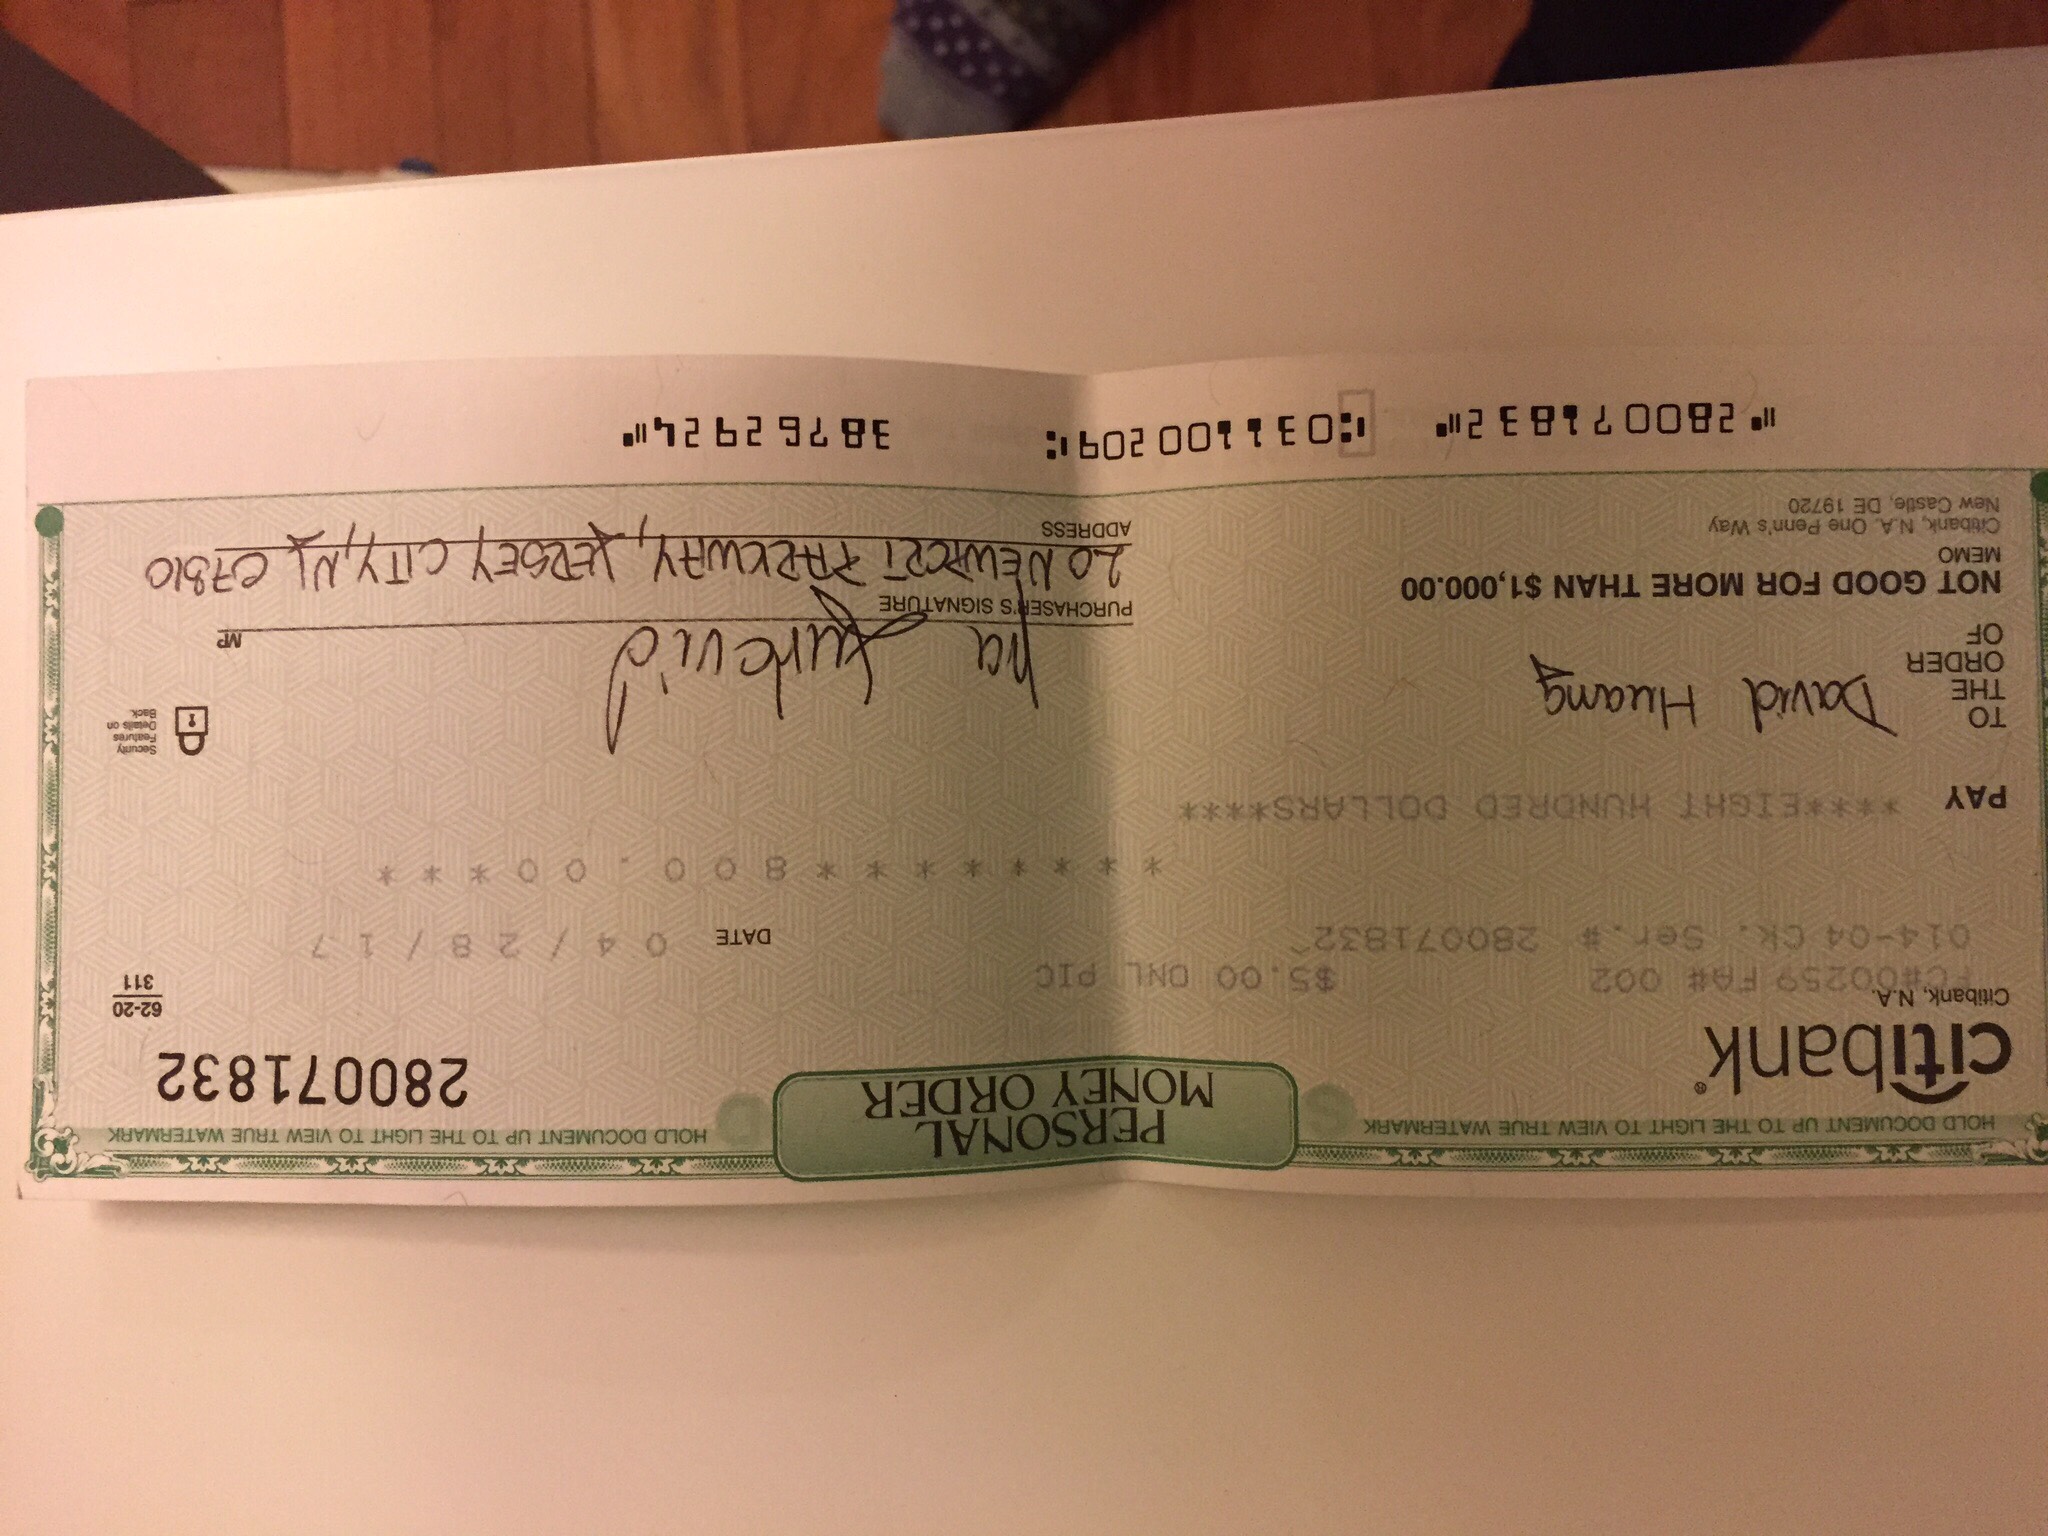 HOLD DOCUMENT UP TO THE LIGHT TO VIEW TRUE WATERMARK
PERSONAL
MONEY ORDER
HOLD DOCUMENT UP TO THE LIGHT TO VIEW TRUE WATERMARK
citibank®
280071832
Citibank, N.A.
62-20
311
FC#00259 FA# 002 $5.00 ONL PIC
014-04 Ck. Ser.# 280071832^
DATE 04/28/17
********800.00***
PAY ****EIGHT HUNDRED DOLLARS****
TO
THE
ORDER
OF
David Huang
Security
Features
Details on
Back.
MP
PURCHASER'S SIGNATURE
NOT GOOD FOR MORE THAN $1,000.00
20 NEWPORT PARKWAY, JERSEY CITY, NJ 07310
MEMO
ADDRESS
Citibank, N.A. One Penn's Way
New Castle, DE 19720
⑈280071832⑈ ⑆031100209⑆ 38762924⑈